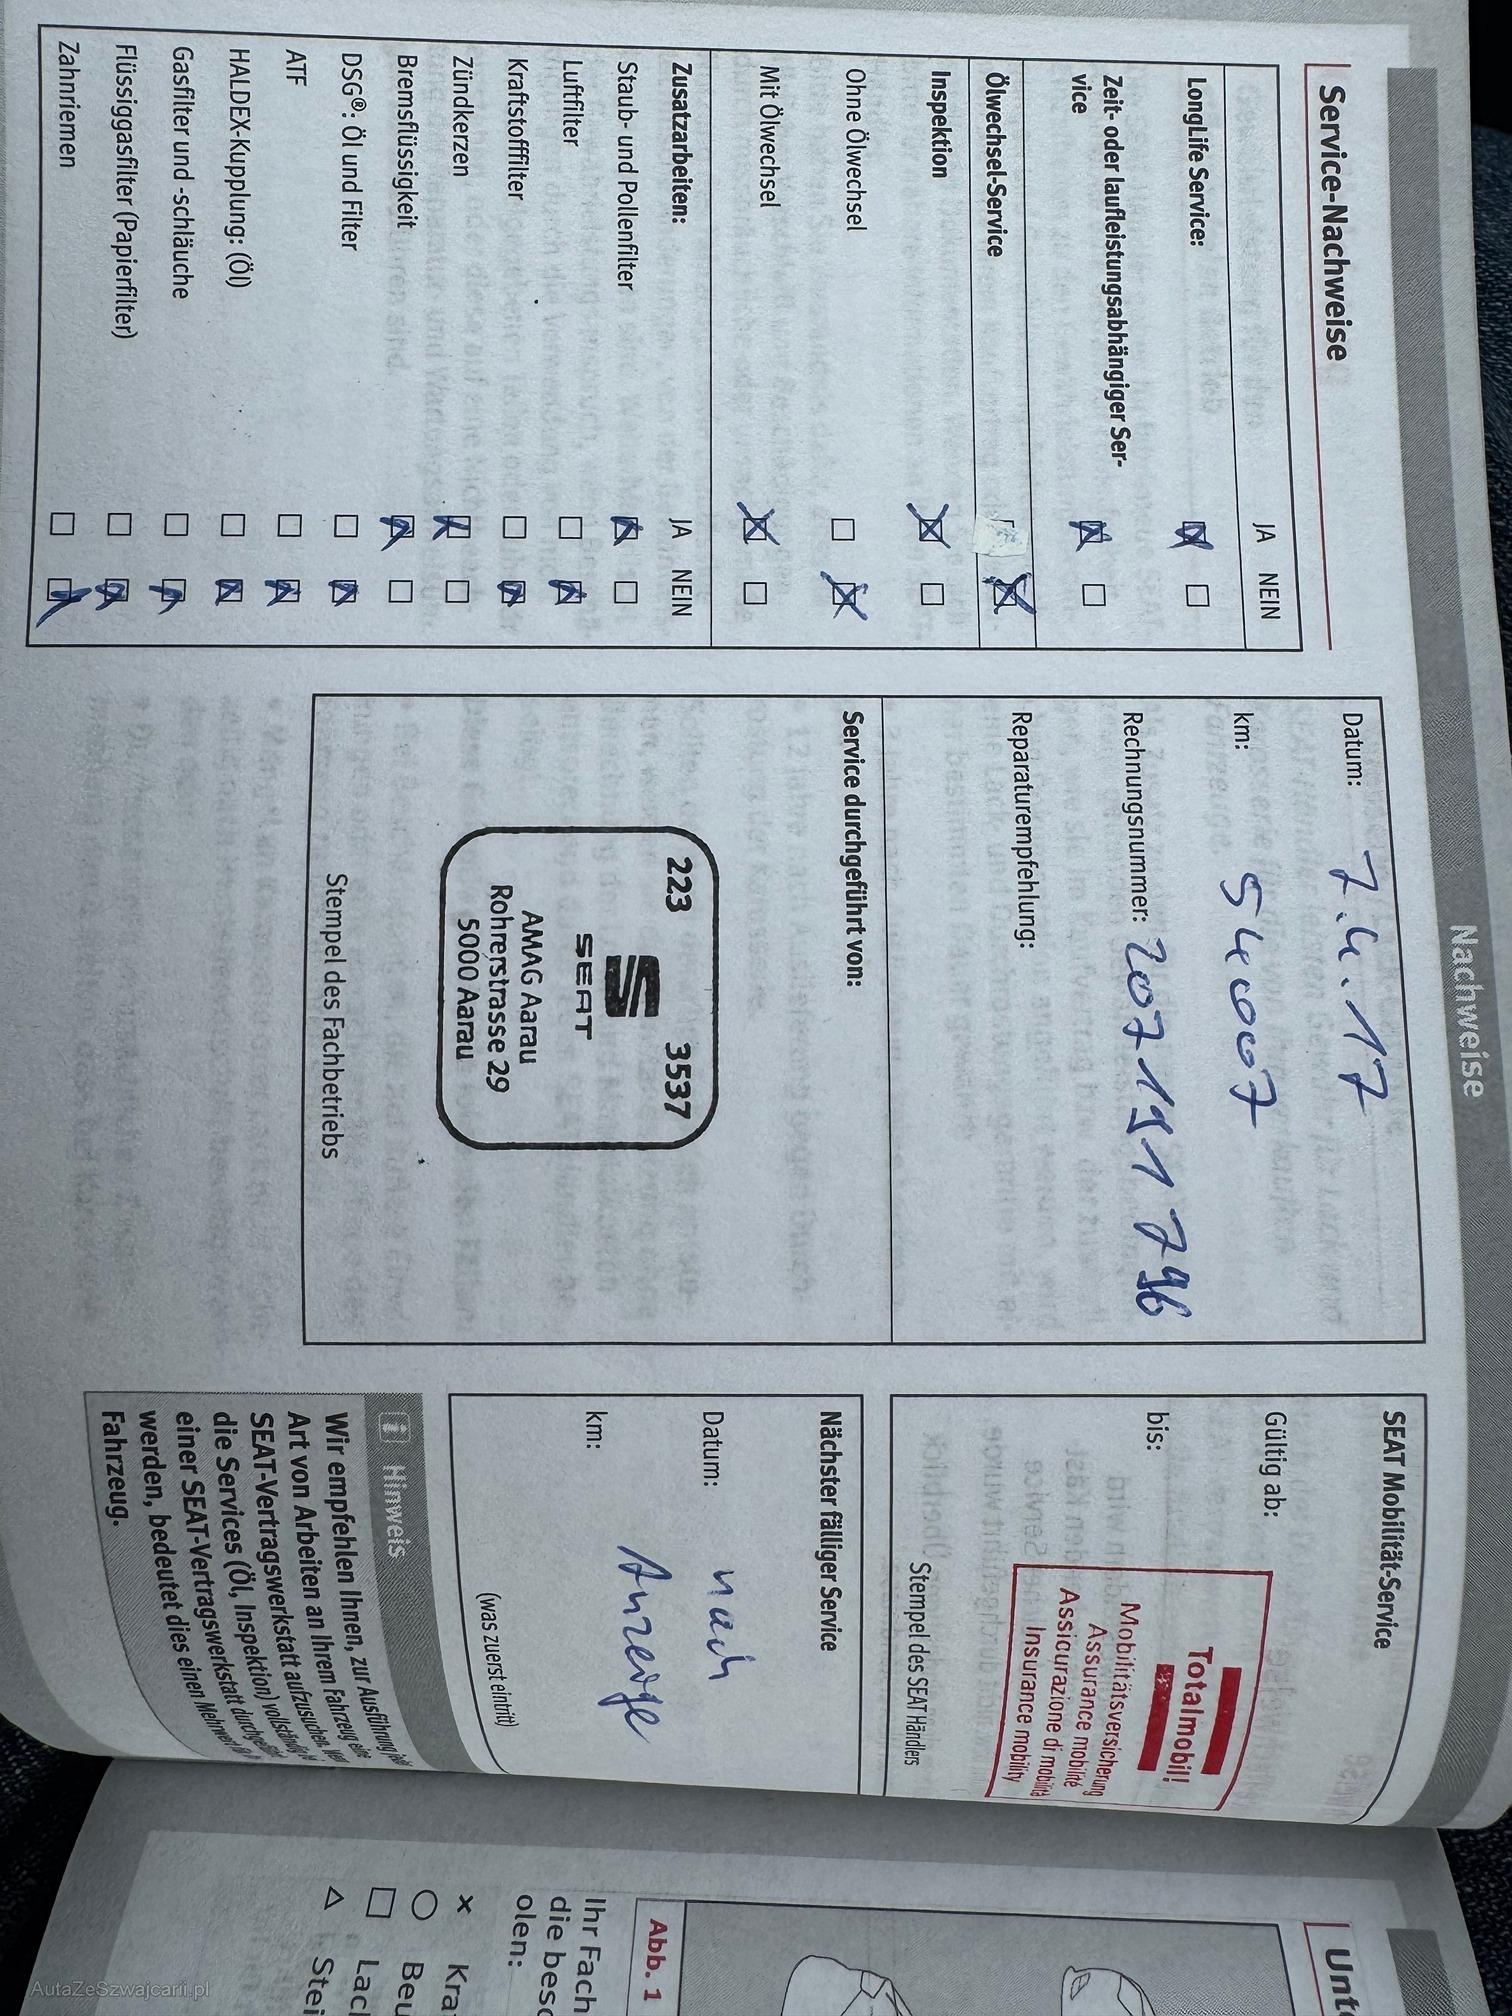 Nachweise
Service-Nachweise
JA NEIN
LongLife Service:
Zeit- oder laufleistungsabhängiger Ser-
vice
Ölwechsel-Service
Inspektion
Ohne Ölwechsel
Mit Ölwechsel
Zusatzarbeiten: JA NEIN
Staub- und Pollenfilter
Luftfilter
Kraftstofffilter
Zündkerzen
Bremsflüssigkeit
DSG®: Öl und Filter
ATF
HALDEX-Kupplung: (Öl)
Gasfilter und -schläuche
Flüssiggasfilter (Papierfilter)
Zahnriemen
Datum: 7.4.17
km: 54007
Rechnungsnummer: 207191796
Reparaturempfehlung:
Service durchgeführt von:
223 3537
SEAT
AMAG Aarau
Rohrerstrasse 29
5000 Aarau
Stempel des Fachbetriebs
SEAT Mobilität-Service
Gültig ab:
bis:
Totalmobil!
Mobilitätsversicherung
Assurance mobilité
Assicurazione di mobilità
Insurance mobility
Stempel des SEAT Händlers
Nächster fälliger Service
Datum: nach
km: Anzeige
(was zuerst eintritt)
i Hinweis
Wir empfehlen Ihnen, zur Ausführung jeder
Art von Arbeiten an Ihrem Fahrzeug eine
SEAT-Vertragswerkstatt aufzusuchen.
die Services (Öl, Inspektion) vollständig
einer SEAT-Vertragswerkstatt durchgeführt
werden, bedeutet dies einen Mehrwert
Fahrzeug.
Unt
Abb. 1
Ihr Fach
die besc
olen:
× Kra
○ Beu
□ Lac
△ Stei
AutaZeSzwajcarii.pl